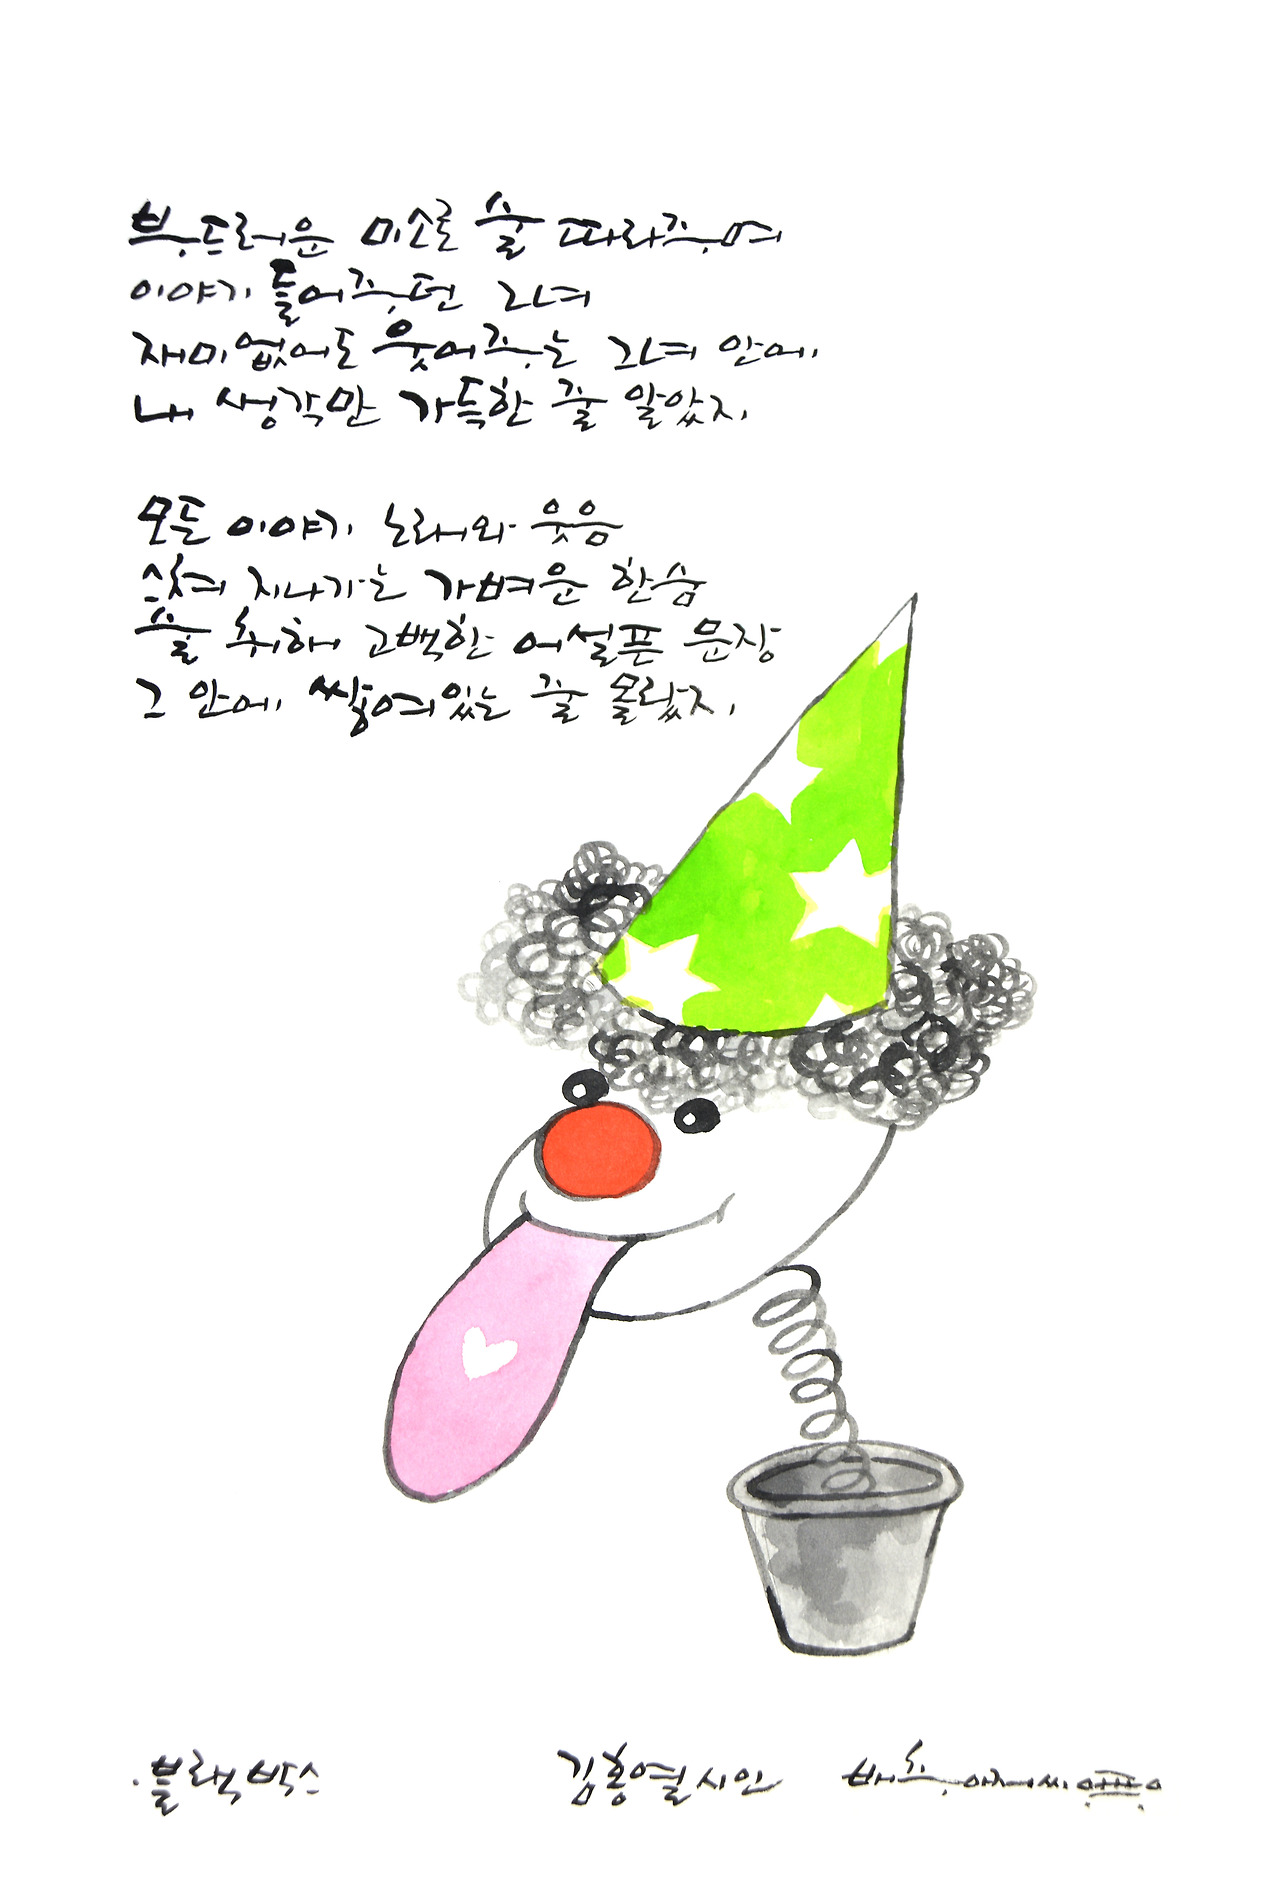 부드러운 미소로 술 따라주며
이야기 들어주던 그녀
재미없어도 웃어주는 그녀 안에
내 생각만 가득한 줄 알았지
모든 이야기 노래와 웃음
스쳐 지나가는 가벼운 한숨
술 취해 고백한 어설픈 문장
그 안에 쌓여있는 줄 몰랐지
·블랙박스
김홍열 시인 배추